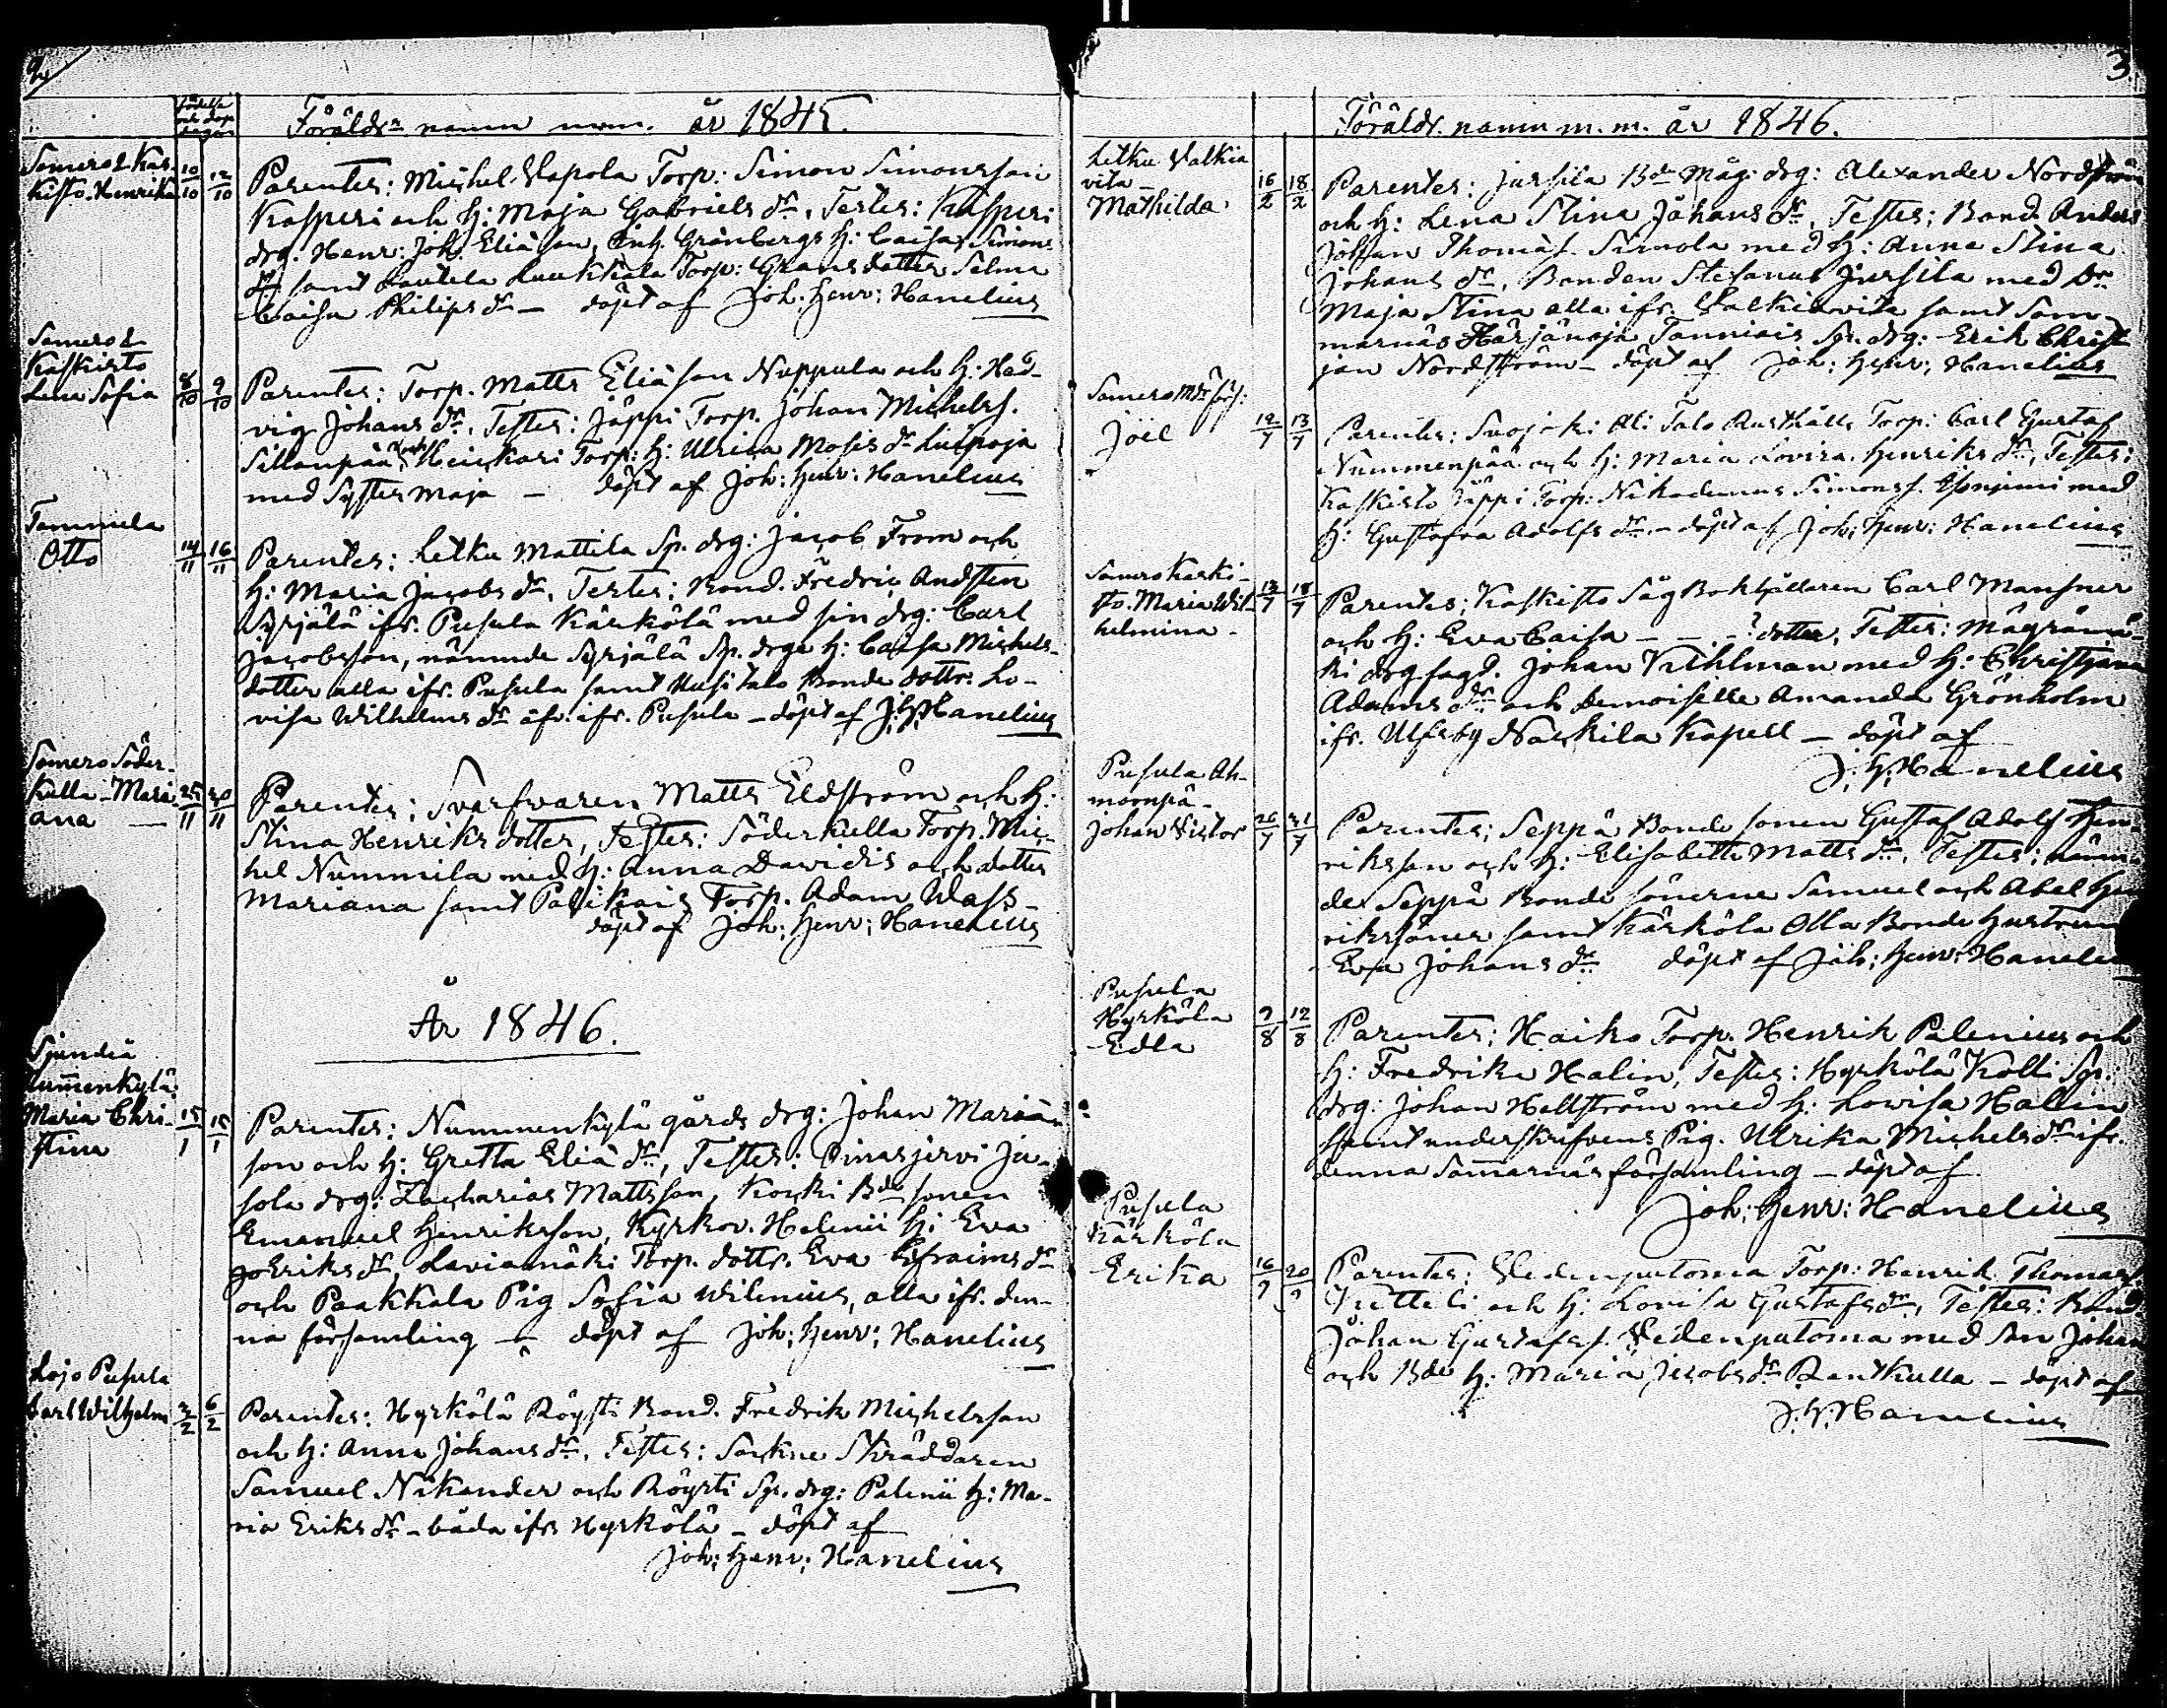 födelse
och dop
dagar
Föräldrs namn mm. år 1845.
Somero & Kas-
kisto. Henrika
10/10 12/10
Parentes: Michel Vapola Torp: Simon Simonsson
Kasperi och h: Maja Gabriels dr. Testes: Kasperi
drg. Henr: Joh. Eliäson, Grönbergs h: Caisa Simons
dr samt Lautela Luukkala Torp: Selma
Caisa Philips dr — döpt af Joh: Henr: Hanelius
Somero &
Kaskisto
Lena Sofia
8/10 9/10
Parentes: Torp. Matts Eliäson Nuppula och h: Hed-
vig Johans dr. Testes: Jäppi Torp. Johan Michelss.
Sillanpää och Heickari Torp: h: Ulrica Mosis dr Luipoja
med Syster Maja — döpt af Joh: Henr: Hanelius
Tammela
Otto
14/11 16/11
Parentes: Letku Mattila Sp. drg: Jacob From och
h: Maria Jacobs dr, Testes: Bond. Fredric Andsten
Syrjälä ifr. Pusula Kärkölä med sin drg: Carl
Jacobsson, nämnde Syrjälä Sp. drgs h: Caisa Michels-
dotter alla ifr. Pusula samt Uusitalo Bonde dottr. Lo-
visa Wilhelms dr äfv. ifr. Pusula — döpt af J: H: Hanelius
Somero Söder-
kulla - Mari-
ana —
25/11 30/11
Parentes: Svarfvaren Matts Eldström och h:
Stina Henriks dotter, Testes: Söderkulla Torp. Mic-
hel Nummila med h: Anna Davidis och dotter
Mariana samt Palikais Torp. Adam Wass-
döpt af Joh: Henr: Hanelius
År 1846.
Sjundeå
Nummenkylä:
Maria Chri-
stina
15/1 15/1
Parentes: Nummenkylä gårds drg: Johan Mariän-
son och h: Gretta Eliä dr., Testes: Oinasjervi Ju-
sola drg: Zacharias Mattsson, Koski Bde sonen
Emanuel Henriksson, Kyrkov. Helenii h: Eva
Eriks dr, Laviamäki Torp. dottr. Eva Efraims dr
och Paakkala Pig Sofia Wilenius, alla ifr. den-
na församling — döpt af Joh: Henr: Hanelius
Lojo Pusula
Carl Wilhelm
3/2 6/2
Parentes: Hyrkölä Röysti Bond. Fredrik Michelsson
och h: Anna Johans dr. Testes: Sockne Skräddaren
Samuel Nikander och Röysti Sp. drg: Palenii h: Ma-
ria Eriks dr - båda ifr Hyrkölä - döpt af
Joh: Henr: Hanelius
3.
Föräldr. namn m.m. år 1846.
Letku Valkia
vita -
Mathilda
16/2 18/2
Parentes: Jursila Bde Måg. drg: Alexander Nordström
och h: Lena Stina Johans dr, Testes: Bond. Anders
Johan Thomas. Simola med h: Anna Stina
Johans dr, Bonden Stefanus Jursila med dr
Maja Stina alla ifr. Valkiavita samt Som-
marnäs Härjänoja Tanniais Sp. drg: Erik Christ-
jan Nordström - döpt af Joh: Henr: Hanelius
Somero Mdr förs:
Joel
12/7 13/7
Parentes: Suojoki Ali Talo Rusthålls Torp: Carl Gustaf
Nummenpää och h: Maria Lovisa Henriks dr, Testes:
Kaskisto Jäppi Torp: Nikodemus Simonss. med
h: Gustafva Adolfs dr. - döpt af Joh: Henr: Hanelius
Somero Kaski-
sto. Maria Wil-
helmina -
13/7 18/7
Parentes: Kaskisto Såg Bokhållaren Carl Mansner
och h: Eva Caisa - - -? dotter, Testes: Mägrämä-
ki drg fogd. Johan Kihlman med h: Christjana
Adams dr och Demoiselle Amanda Grönholm
ifr. Ulfsby Nackila Kapell — döpt af
J: H: Hanelius
Pusula Ah-
moonpä -
Johan Victor
26/7 31/7
Parentes: Seppä Bonde sonen Gustaf Adolf Hen-
riksson och h: Elisabetta Matts dr. Testes: nämn-
de Seppä Bonde sönerne Samuel och Abel Hen
riks söner samt Kärköla Olla Bonde hustrun
Eva Johans dr döpt af Joh: Henr: Hanelius
Pusula
Hyrköla
Edla
9/8 12/8
Parentes: Haiko Torp. Henrik Palenius och
h: Fredrika Halin, Testes: Hyrkölä Kolli Sp.
drg: Johan Hellström med h: Lovisa Hallin
samt underskrifvens Pig. Ulrika Michels dr ifr.
denna Somarnäs församling — döpt af
Joh: Henr: Hanelius
Pusula
Kärköla
Erika
16/9 20/9
Parentes: Vedenputoma Torp: Henrik Thomas.
och h: Lovisa Gustafs dr, Testes: Bond.
Johan Gustafss. Vedenputoma med son Johan
och Bde h: Maria Jacobs dr Rantkulla - döpt af
J: H: Hanelius